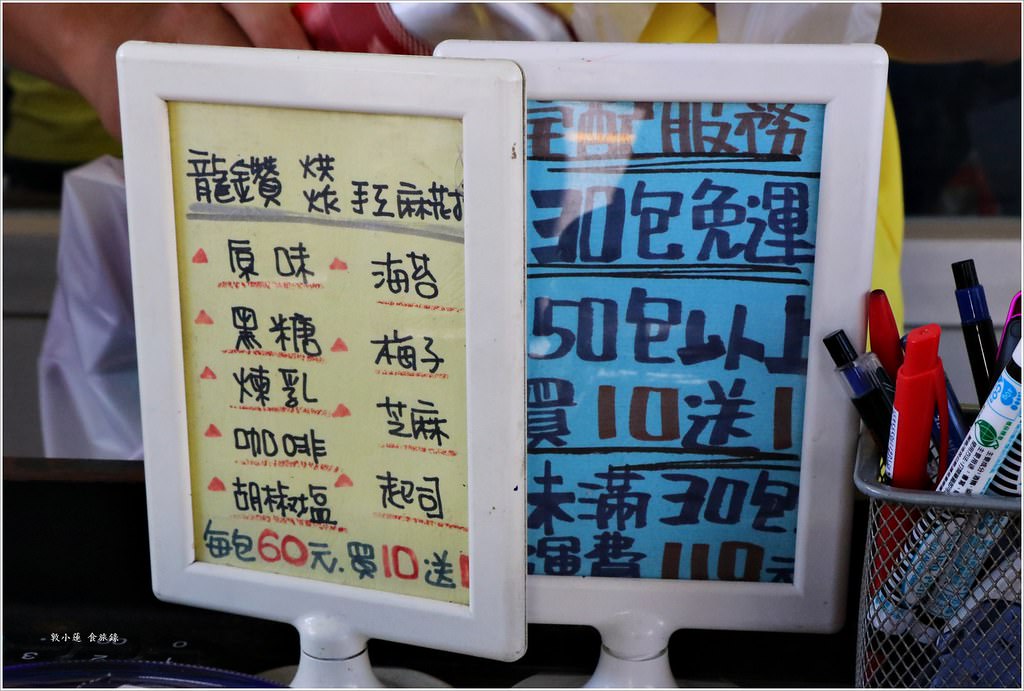 龍鑽 烘炸 手工麻花
原味 海苔
黑糖 梅子
煉乳 芝麻
咖啡 起司
胡椒塩
每包60元.買10送1
宅配服務
30包免運
50包以上
買10送1
未滿30包
運費110元
敦小蓮 食旅錄